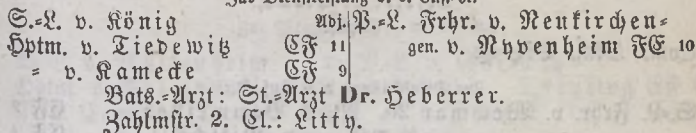 S.-L. v. König
Hptm. v. Tiedewitz CF 11
= v. Kamecke CF 9
Adj. P.-L. Frhr. v. Neukirchen-
gen. v. Nyvenheim FE 10
Bats.-Arzt: St.-Arzt Dr. Heberrer.
Zahlmstr. 2. Cl.: Litty.